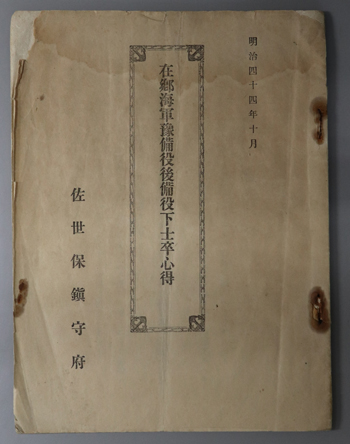 明治四十四年十月
在鄕海軍豫備役後備役下士卒心得
佐世保鎭守府